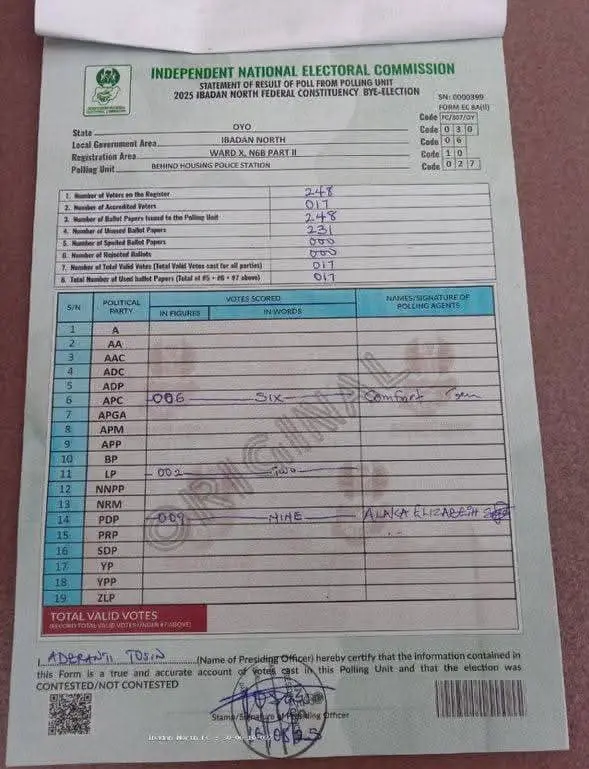 INDEPENDENT NATIONAL ELECTORAL COMMISSION
STATEMENT OF RESULT OF POLL FROM POLLING UNIT
2025 IBADAN NORTH FEDERAL CONSTITUENCY BYE-ELECTION
SN: 0000399
FORM EC 8A(II)
Code FC/507/OY
State OYO Code 0 3 0
Local Government Area IBADAN NORTH Code 0 6
Registration Area WARD X, N6B PART II Code 1 0
Polling Unit BEHIND HOUSING POLICE STATION Code 0 2 7
1. Number of Voters on the Register 248
2. Number of Accredited Voters 017
3. Number of Ballot Papers Issued to the Polling Unit 248
4. Number of Unused Ballot Papers 231
5. Number of Spoiled Ballot Papers 000
6. Number of Rejected Ballots 000
7. Number of Total Valid Votes (Total Valid Votes cast for all parties) 017
8. Total Number of Used ballot Papers (Total of #5 + #6 + #7 above) 017
S/N POLITICAL PARTY VOTES SCORED NAMES/SIGNATURE OF POLLING AGENTS
IN FIGURES IN WORDS
1 A
2 AA
3 AAC
4 ADC
5 ADP
6 APC 006 SIX Comfort
7 APGA
8 APM
9 APP
10 BP
11 LP 002 Two
12 NNPP
13 NRM
14 PDP 009 NINE ALAKA ELIZABETH
15 PRP
16 SDP
17 YP
18 YPP
19 ZLP
ORIGINAL
TOTAL VALID VOTES
(RECORD TOTAL VALID VOTES UNDER #7 ABOVE)
I, ADERANTI TOSIN (Name of Presiding Officer) hereby certify that the information contained in
this Form is a true and accurate account of votes cast in this Polling Unit and that the election was
CONTESTED/NOT CONTESTED
Stamp/Signature of Presiding Officer